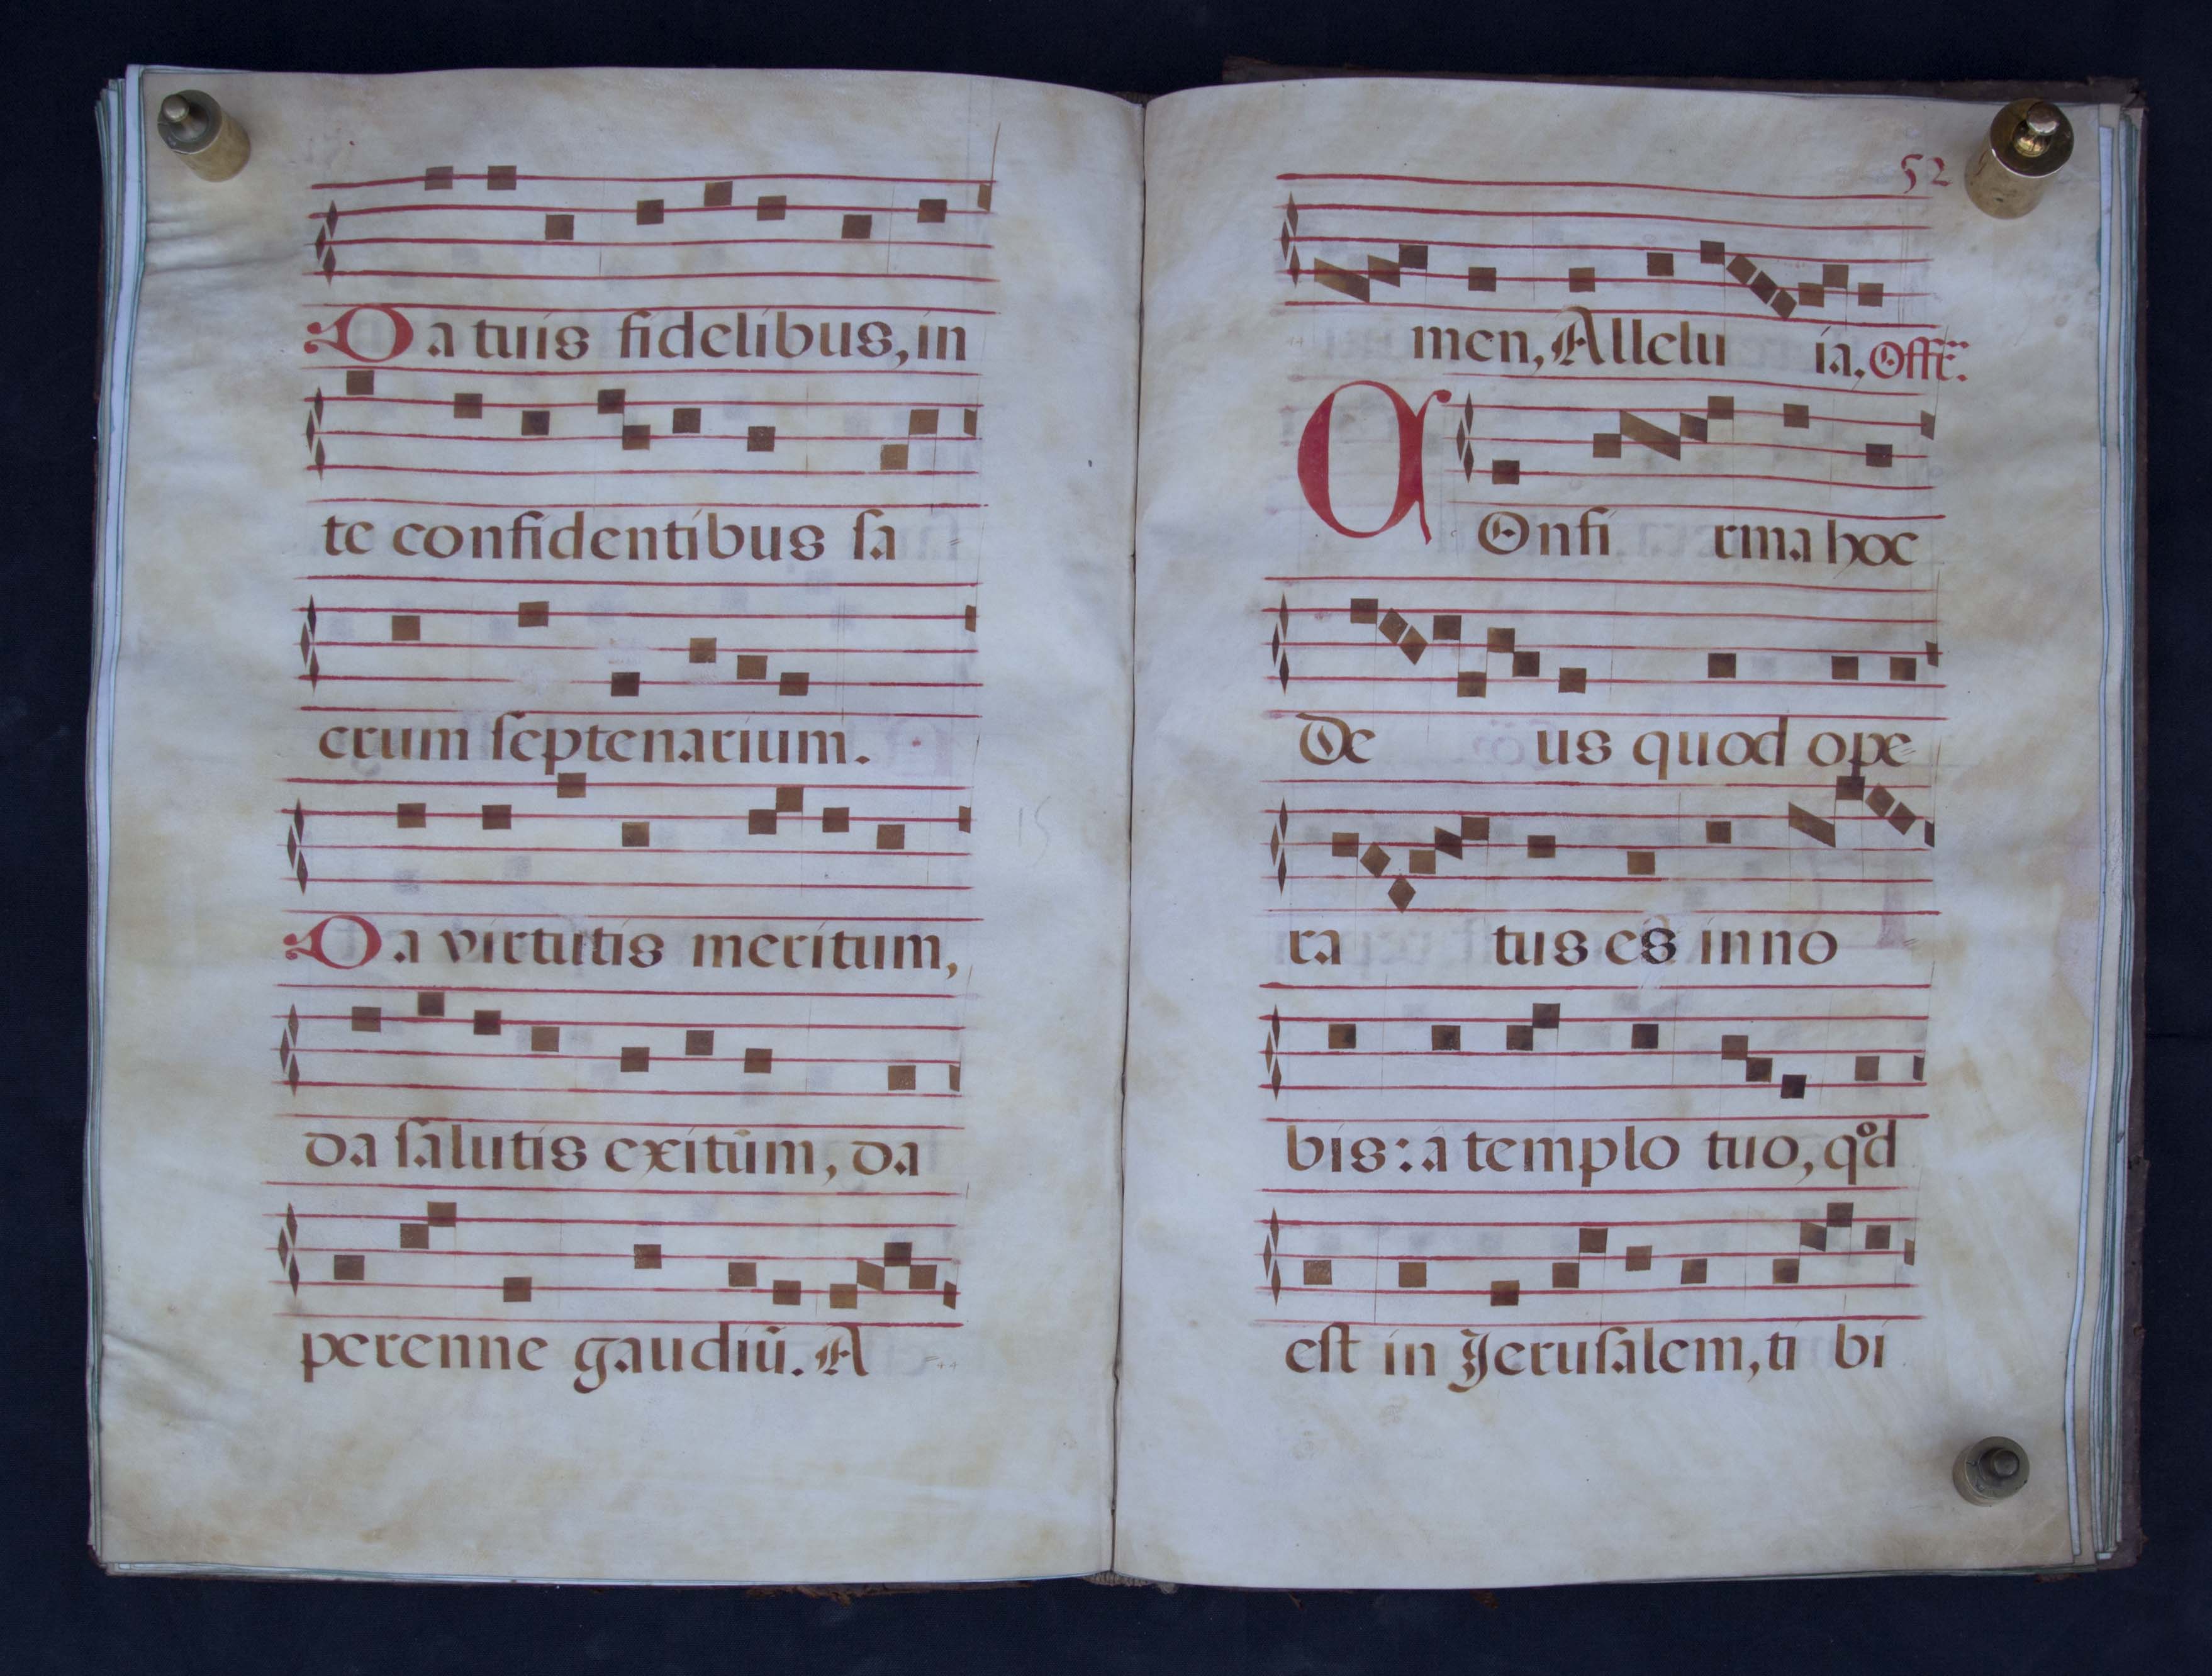 Da tuis fidelibus, in
te confidentibus ſa
crum ſeptenarium.
Da virtutis meritum,
da ſalutis exitũm, da
perenne gaudiũ. A
52
men, Allelu ia, Offr̃.
COnfi rma hoc
De us quod ope
ra tus es in no
bis: a templo tuo, qͦd
eſt in Jeruſalem, ti bi